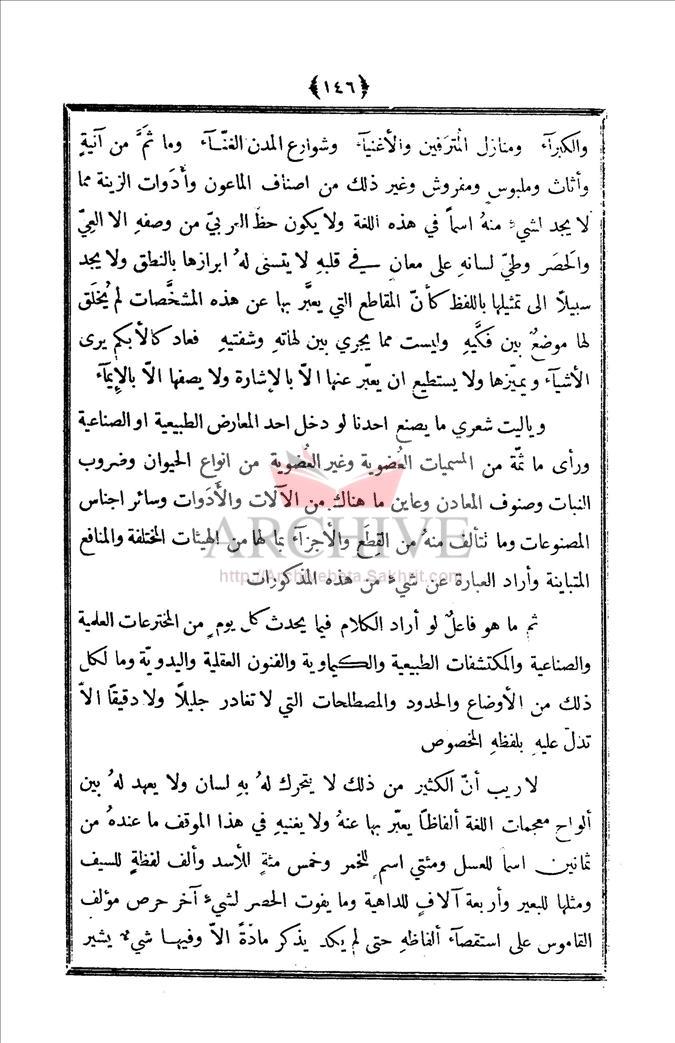 ﴿١٤٦﴾
والكبرآء ومنازل المُترَفين والأغنيآء وشوارع المدن الغنّآء وما ثَمَّ من آنيةٍ
وأثاث وملبوس ومفروش وغير ذلك من اصناف الماعون وأَدَوات الزينة مما
لا يجد لشيءٍ منهُ اسماً في هذه اللغة ولا يكون حظّ العربيّ من وصفهِ الا العِيّ
والحَصَر وطيّ لسانهِ على معانٍ في قلبهِ لا يتسنى لهُ ابرازها بالنطق ولا يجد
سبيلاً الى تمثيلها باللفظ كأنّ المقاطع التي يعبَّر بها عن هذه المشخَّصات لم يُخلَق
لها موضعٌ بين فكَّيهِ وليست مما يجري بين لهاتهِ وشفتيهِ فعاد كالأبكم يرى
الأشيآء ويميّزها ولا يستطيع ان يعبّر عنها الاّ بالإشارة ولا يصفها الاّ بالإيمآء
وياليت شعري ما يصنع احدنا لو دخل احد المعارض الطبيعية او الصناعية
ورأى ما ثمّة من المسميات العُضوية وغير العُضوية من انواع الحيوان وضروب
النبات وصنوف المعادن وعاين ما هناك من الآلات والأَدَوات وسائر اجناس
المصنوعات وما تتألف منهُ من القِطَع والأجزآء بما لها من الهيئات المختلفة والمنافع
المتباينة وأراد العبارة عن شيءٍ من هذه المذكورات
ثم ما هو فاعلٌ لو أراد الكلام فيما يحدث كل يومٍ من المخترعات العلمية
والصناعية والمكتشفات الطبيعية والكيماوية والفنون العقلية واليدويّة وما لكل
ذلك من الأوضاع والحدود والمصطلحات التي لا تغادر جليلاً ولا دقيقًا الاّ
تدلّ عليهِ بلفظهِ المخصوص
لا ريب أنّ الكثير من ذلك لا يتحرك لهُ بهِ لسان ولا يعهد لهُ بين
ألواح معجمات اللغة ألفاظًا يعبّر بها عنهُ ولا يغنيهِ في هذا الموقف ما عندهُ من
ثمانين اسماً للعسل ومئتي اسمٍ للخمر وخمس مئةٍ للأسد وألف لفظةٍ للسيف
ومثلها للبعير وأربعة آلافٍ للداهية وما يفوت الحصر لشيءٍ آخر حرص مؤلف
القاموس على استقصآء ألفاظهِ حتى لم يكد يذكر مادّةً الاّ وفيها شيءٌ يشير
ARCHIVE
http://Archivebeta.Sakhrit.com